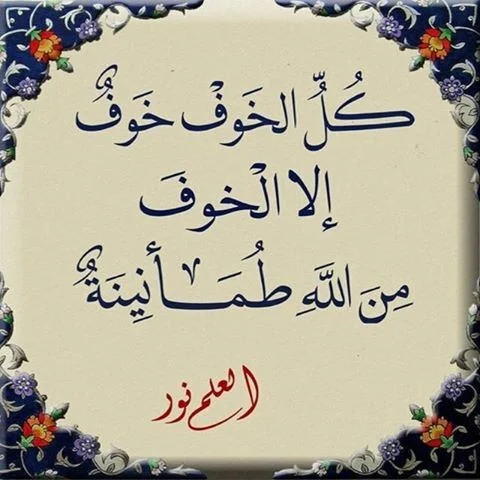 كُلُّ الخَوفْ خَوفٌ
إلا الْخوفَ
مِنَ اللَّهِ طُمَأنِينَةٌ
العلم نور